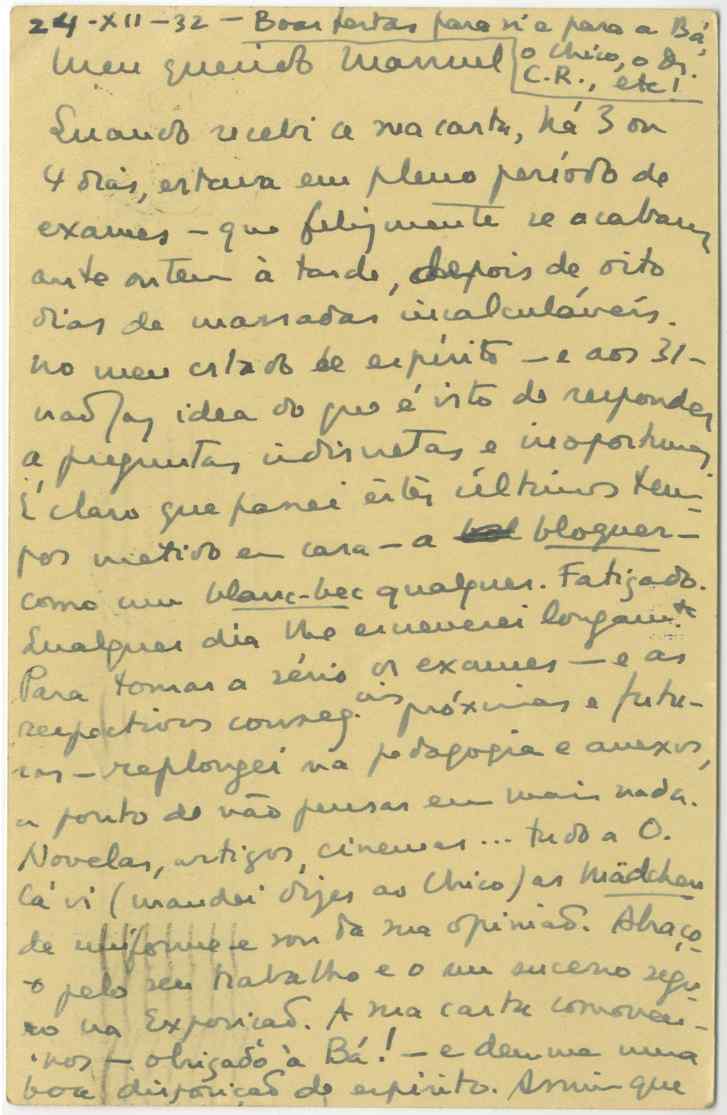 24-XII-32 - Boas festas para si e para a Bá,
o Chico, o Dr.
C.R., etc!
Meu querido Manuel
Quando recebi a sua carta, há 3 ou
4 dias, estava em pleno período de
exames - que felizmente se acabaram
ante ontem à tarde, depois de oito
dias de massadas incalculáveis.
No meu estado de espírito - e aos 31 -
não faz idea do que é isto de responder
a preguntas indiscretas e inoportunas
É claro que passei êstes últimos tem-
pos metido em casa - a bloquer -
como um blanc-bec qualquer. Fatigado.
Qualquer dia lhe escreverei longamte
Para tomar a sério os exames - e as
respectivas conseg. cias próximas e futu-
ras - replongei na pedagogia e anexos,
a ponto de não pensar em mais nada.
Novelas, artigos, cinemas... tudo a O.
Cá vi (mandei dizer ao Chico) as Mädchen
de uniforme e sou da sua opinião. Abraço-
o pelo seu trabalho e o seu sucesso segu-
ro na Exposição. A sua carta comoveu-
nos - obrigado à Bá! - e deu-me uma
boa disposição de espírito. Assim que